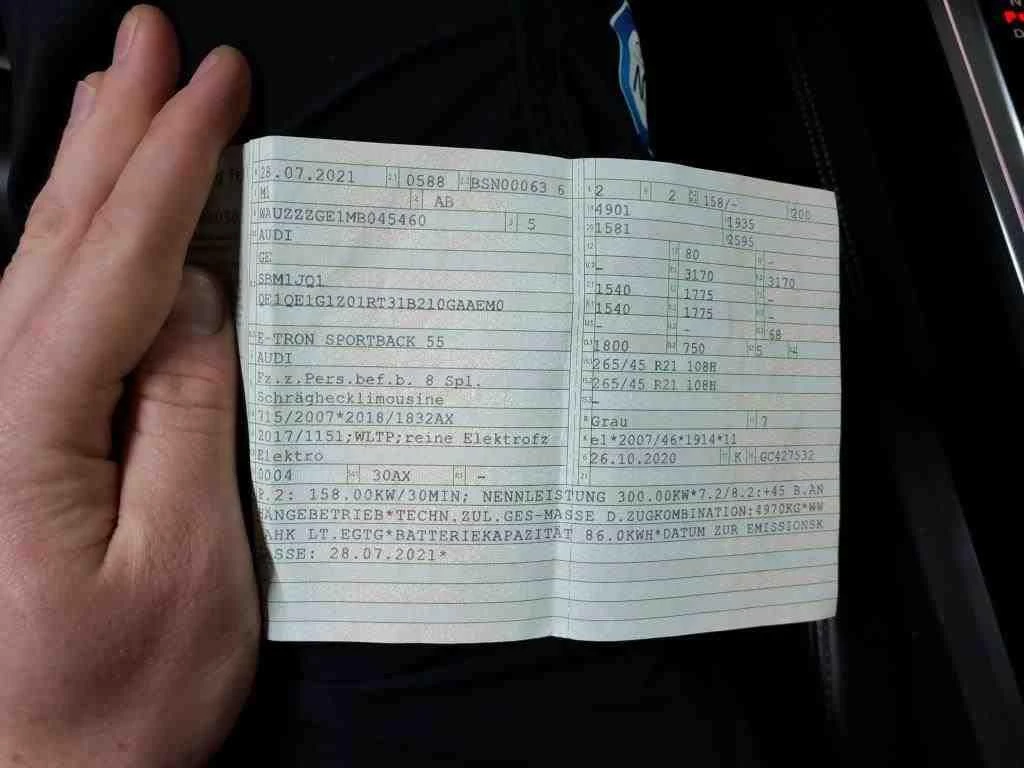 28.07.2021 0588 BSN00063 6
M1 AB
WAUZZZGE1MB045460 5
AUDI
GE
SBM1JQ1
QE1QE1G1Z01RT31B210GAAEM0
E-TRON SPORTBACK 55
AUDI
Fz.z.Pers.bef.b. 8 Spl.
Schräghecklimousine
715/2007*2018/1832AX
2017/1151;WLTP;reine Elektrofz
Elektro
0004 30AX -
2 2 158/- 200
4901 1935
1581 2595
80 -
- 3170 3170
1540 1775 -
1540 1775 -
- - 68
1800 750 5
265/45 R21 108H
265/45 R21 108H
-
Grau 7
e1*2007/46*1914*11
26.10.2020 K GC427532
P.2: 158.00KW/30MIN; NENNLEISTUNG 300.00KW*7.2/8.2:+45 B.AN
HANGEBETRIEB*TECHN.ZUL.GES-MASSE D.ZUGKOMBINATION:4970KG*WW
AHK LT.EGTG*BATTERIEKAPAZITÄT 86.0KWH*DATUM ZUR EMISSIONSK
LASSE: 28.07.2021*